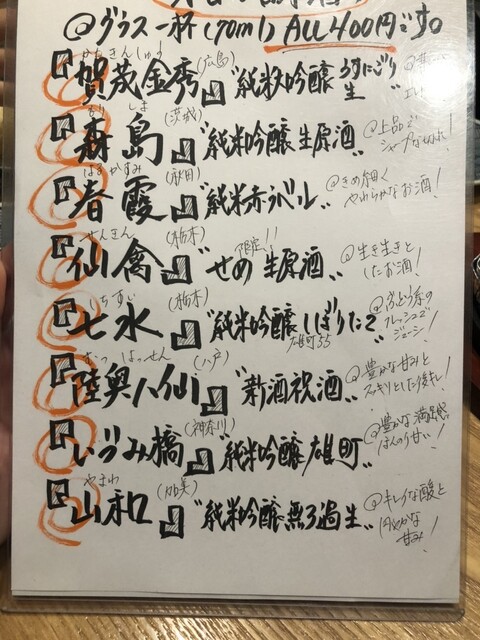 @グラス一杯(90ml) ALL400円です
かもきんしゅう (広島)
『賀茂金秀』"純米吟醸 うすにごり生"
もりしま (茨城)
『森島』"純米吟醸 生原酒" @上品で シャープなキレ!
はるかすみ (秋田)
『春霞』"純米赤ラベル" @きめ細く やわらかなお酒!
せんきん (栃木) 限定!!
『仙禽』"せめ 生原酒" @生き生きと したお酒!
しちすい (栃木)
『七水』"純米吟醸 しぼりたて" 雄町55 @ぶどう系の フレッシュで ジューシー!
むつ はっせん (八戸)
『陸奥八仙』"新酒祝酒" @豊かな甘みと スッキリとした後キレ!
(神奈川)
『いづみ橋』"純米吟醸 雄町" @豊かな満足感 ほんのり甘い!
やまわ (加美)
『山和』"純米吟醸 無ろ過生" @キレイな酸と 円やかな 甘み!